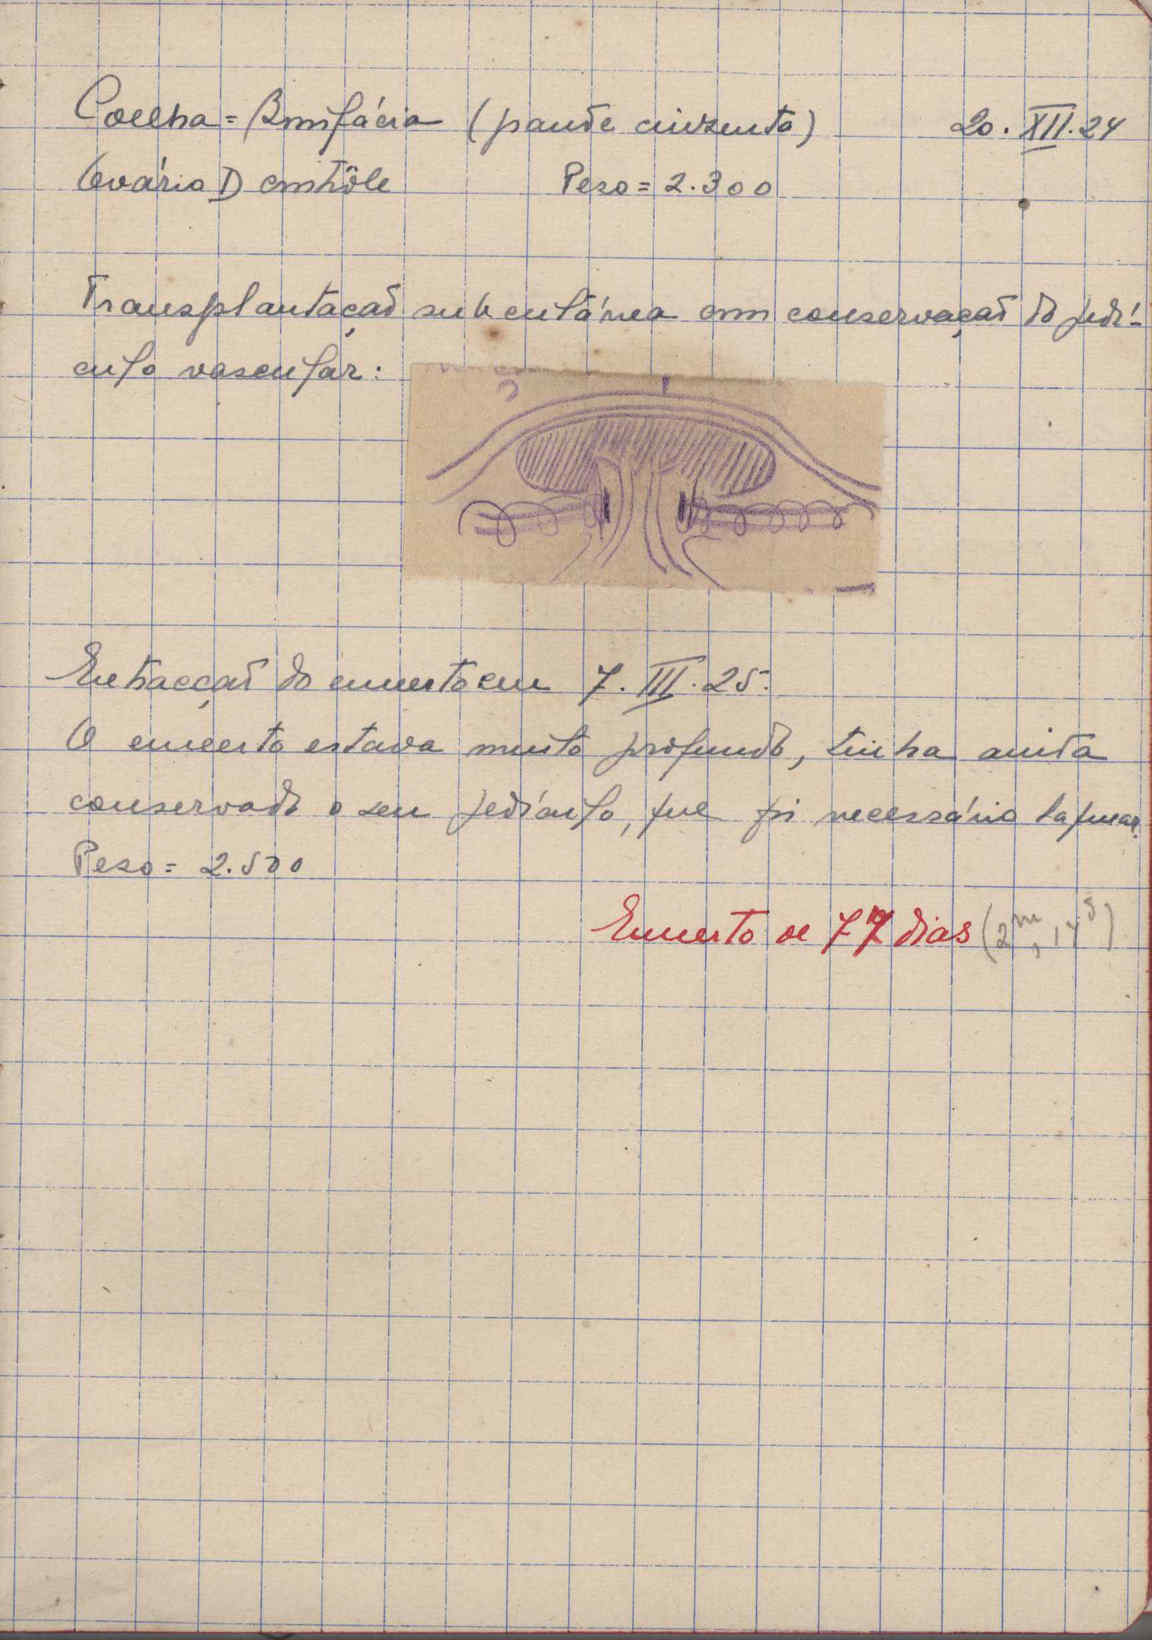 Coelha = Bonifácia (grande cinzenta) 20. XII. 24
Ovário D contrôle Peso = 2.300
Transplantação subcutánea com conservação do pedí-
culo vascular:
Extracção do enxerto em 7. III. 25.
O enxerto estava muito profundo, tinha ainda
conservado o seu pedículo, que foi necessário laquear.
Peso = 2.500
Enxerto de 77 dias (2m, 17d)